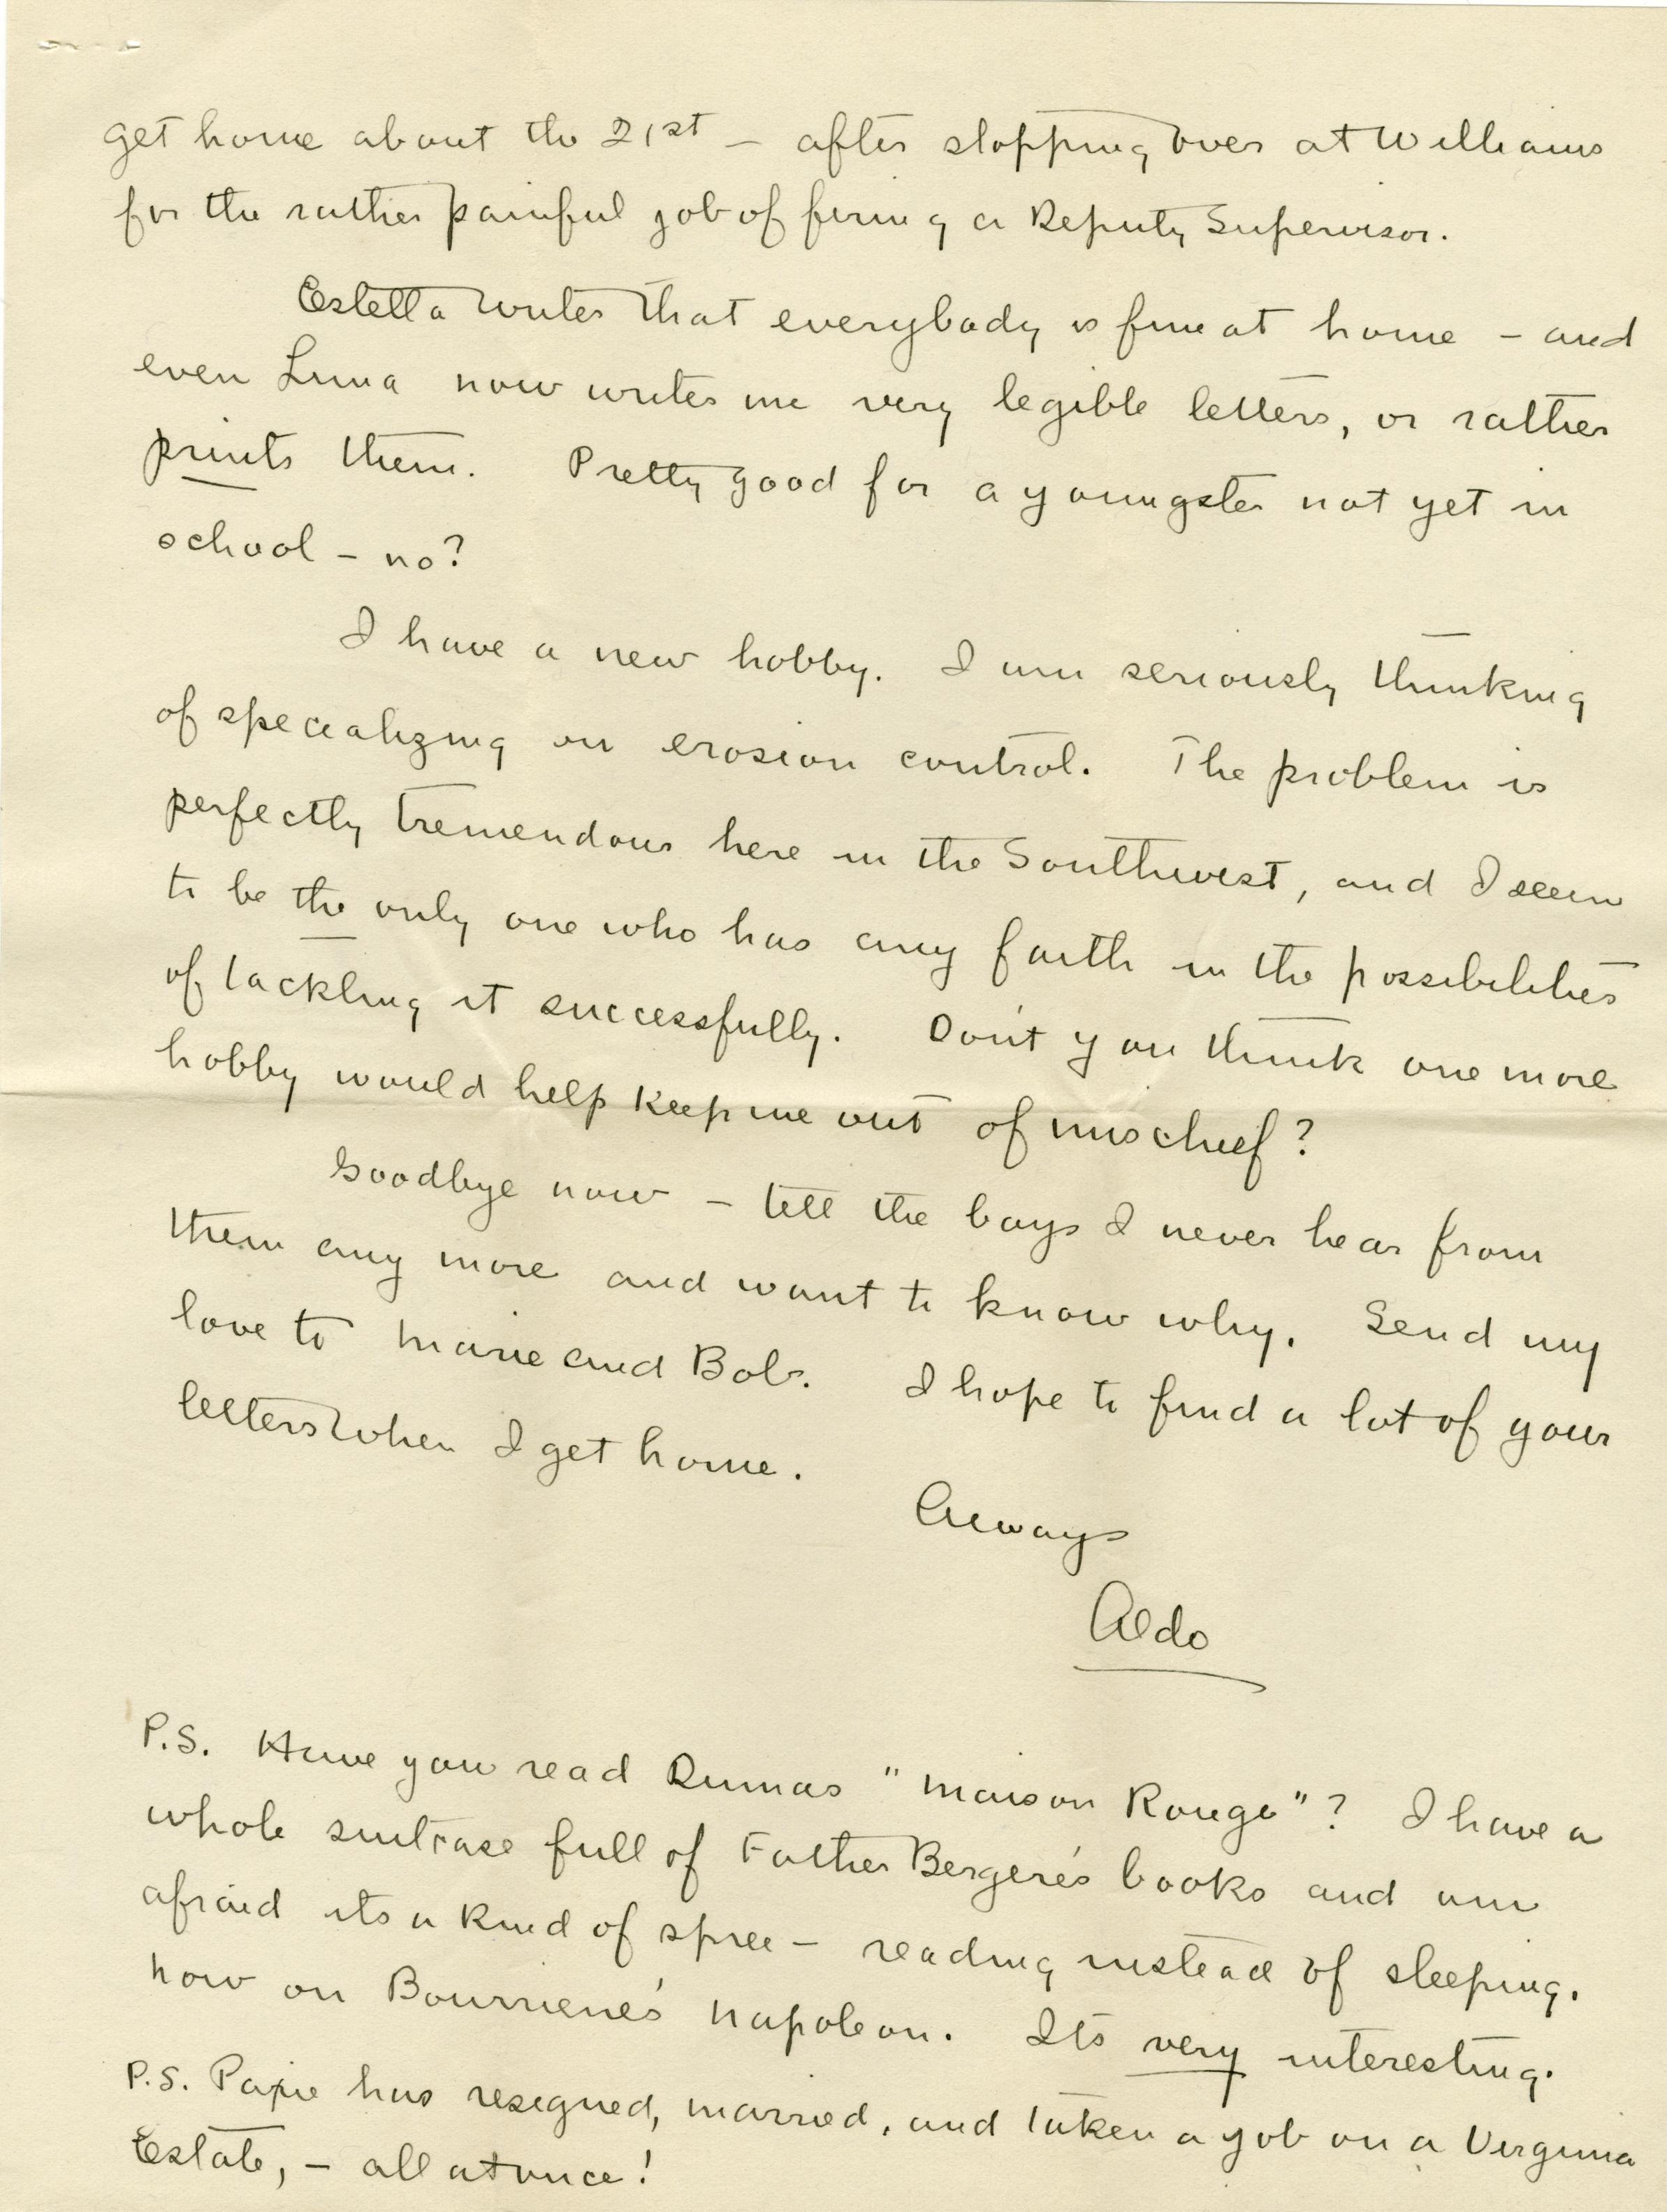 get home about the 21st – after stopping over at Williams
for the rather painful job of firing a Deputy Supervisor.
Estella writes that everybody is fine at home – and
even Luna now writes me very legible letters, or rather
prints them. Pretty good for a youngster not yet in
school – no?
I have a new hobby. I am seriously thinking
of specializing on erosion control. The problem is
perfectly tremendous here in the Southwest, and I seem
to be the only one who has any faith in the possibilities
of tackling it successfully. Don't you think one more
hobby would help keep me out of mischief?
Goodbye now – tell the boys I never hear from
them any more and want to know why. Send my
love to Marie and Bob. I hope to find a lot of your
letters when I get home.
Always
Aldo
P.S. Have you read Dumas "Maison Rouge"? I have a
whole suitcase full of Father Bergere's books and am
afraid its a kind of spree – reading instead of sleeping.
Now on Bourriene's Napoleon. Its very interesting.
P.S. has resigned, married, and taken a job on a Virginia
Estate, – all at once!